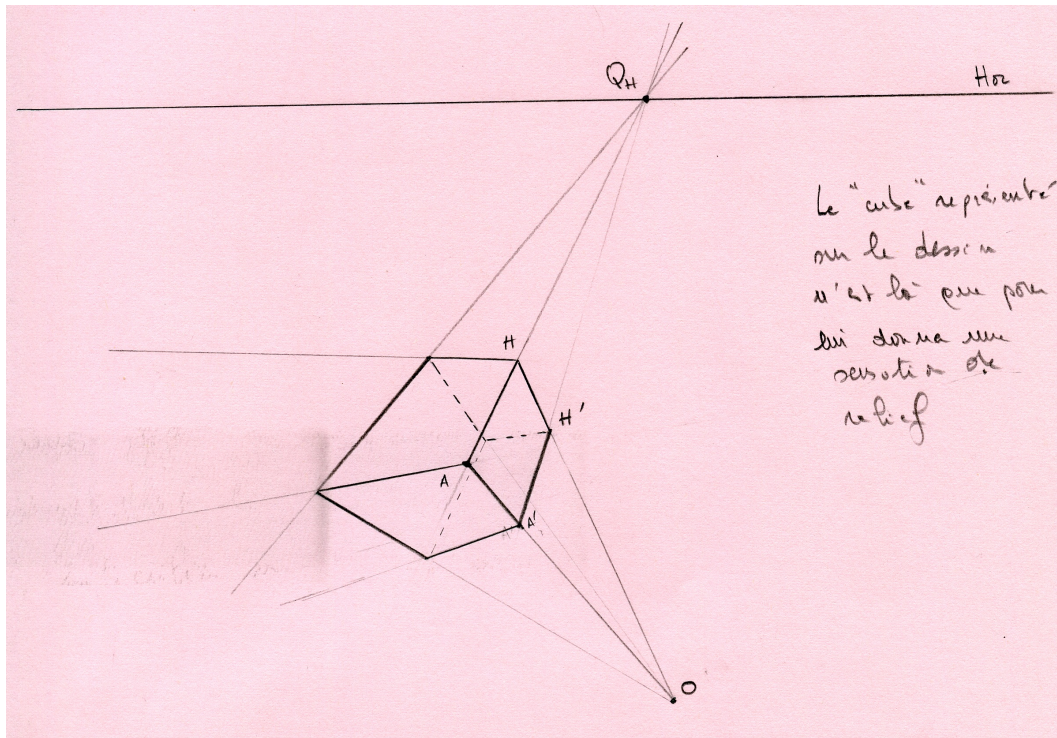 φH
Hor
Le "cube" représenté
sur le dessin
n'est là que pour
lui donner une
sensation de
relief
H
H'
A
A'
O